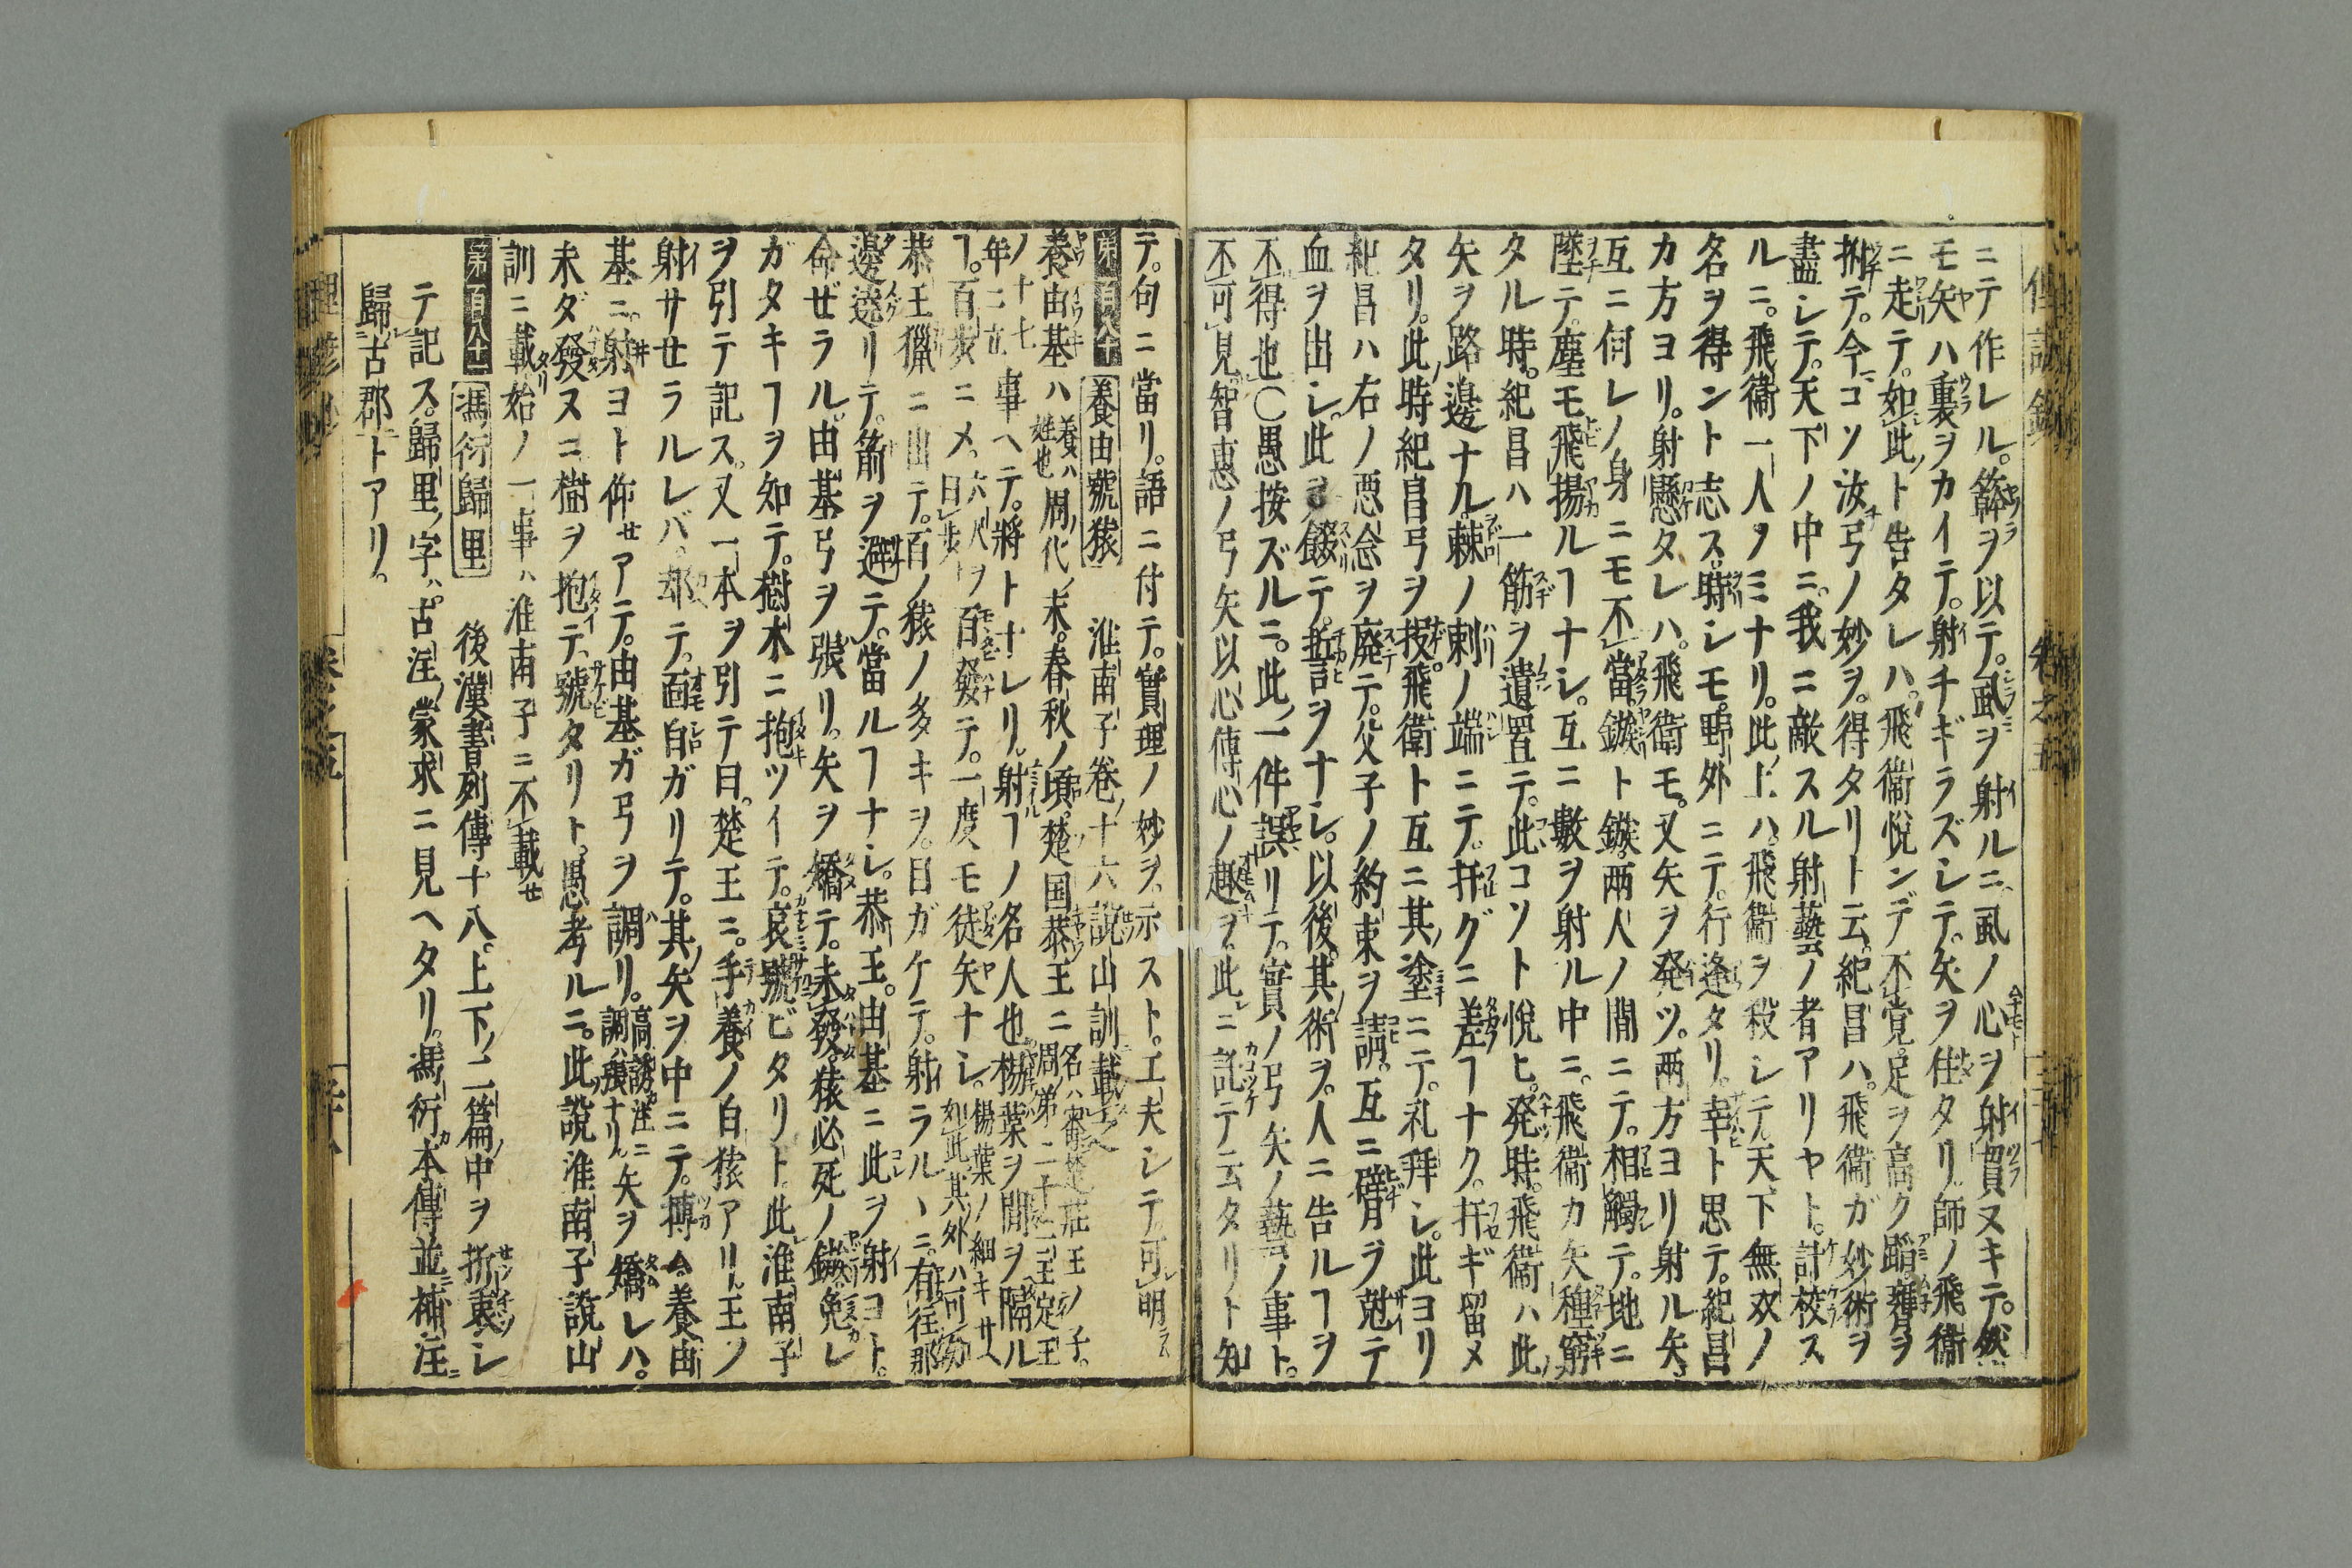 ニテ作レル。簳ヲ以テ。虱ヲ射ルニ。虱ノ心ヲ射貫ヌキテ。然
モ矢ハ裏ヲカイテ。射チギラズシテ。矢ヲ住タリ。師ノ飛衞
ニ走テ。如此ト告タレハ。飛衞悦ンデ不覚。足ヲ高ク蹈。膺ヲ
拊テ。今コソ汝弓ノ妙ヲ。得タリト云。紀昌ハ。飛衞ガ妙術ヲ
盡シテ。天下ノ中ニ。我ニ敵スル射藝ノ者アリヤト。計校ス
ルニ。飛衞一人ノミナリ。此上ハ。飛衞ヲ殺シテ。天下無双ノ
名ヲ得ント志ス。時シモ。野外ニテ。行逢タリ。幸ト思テ。紀昌
カ方ヨリ。射懸タレハ。飛衞モ。又矢ヲ発ツ。両方ヨリ射ル矢
互ニ何レノ身ニモ不當。鏃ト鏃。両人ノ間ニテ。相觸テ。地ニ
墜テ。塵モ飛揚ルヿナシ。互ニ數ヲ射ル中ニ。飛衞カ矢種窮
タル時。紀昌ハ一筋ヲ遺置テ。此コソト悦ヒ。発時。飛衞ハ此
矢ヲ路邊ナル。棘ノ刺ノ端ニテ。扞グニ差ヿナク。扞ギ留メ
タリ。此時紀昌弓ヲ投。飛衞ト互ニ其塗ニテ。礼拜シ。此ヨリ
紀昌ハ右ノ悪念ヲ廃テ。父子ノ約束ヲ請。互ニ臂ヲ尅テ
血ヲ出シ。此ヲ餟テ。誓言ヲナシ。以後其術ヲ。人ニ告ルヿヲ
不得也〇愚按ズルニ。此一件誤リテ。實ノ弓矢ノ藝ノ事ト。
不可見。智惠ノ弓矢以心傳心ノ趣ヲ。此ニ託テ云タリト知
テ。句ニ當リ。語ニ付テ。實理ノ妙ヲ示スト。工夫シテ可明
第百八十 養由號猿 淮南子卷十六説山訓載
養由基ハ養ハ姓也周ノ代ノ末。春秋ノ頃。楚国恭王ニ名ハ審楚莊王ノ子。周ノ第二十一王定王
ノ十七年ニ立事ヘテ。將トナレリ。射ヿノ名人也。楊葉ヲ間ヲ隔ル
ヿ。百歩ニメ。六尺ヲ曰歩百發テ。一度モ徒矢ナシ。楊葉ノ細キサヘ如此其外ハ可知
恭王獵ニ出テ。百ノ猿ノ多キヲ。目ガケテ。射ラルヽニ。有徃那
邊遶リテ。箭ヲ避テ。當ルヿナシ。恭王。由基ニ此ヲ射ヨト。
命ぜラル。由基弓ヲ張リ。矢ヲ矯テ。未發。猿必死ノ鏃免レ
ガタキヿヲ知テ。樹木ニ抱ツイテ。哀號ビタリト。此淮南子
ヲ引テ記ス。又一本ヲ引テ曰。楚王ニ。手養ノ白猿アリ。王ノ
射サせラルレバ。却テ。面白ガリテ。其矢ヲ中ニテ。搏ム。養由
基ニ。射ヨト仰せアテ。由基ガ弓ヲ調リ。高誘注ニ調ハ張ナリ矢ヲ矯レハ。
未ダ發ヌニ樹ヲ抱テ。號タリト。愚考ルニ。此説淮南子説山
訓ニ載タリ始ノ一事ハ淮南子ニ不載せ
第百八十一 馮衍歸里 後漢書列傳十八。上下ノ二篇ノ中ヲ折衷シ
テ記ス。歸里ノ字ハ。古注蒙求ニ見ヘタリ。馮衍カ本傳並補注ニ
歸古郡トアリ。